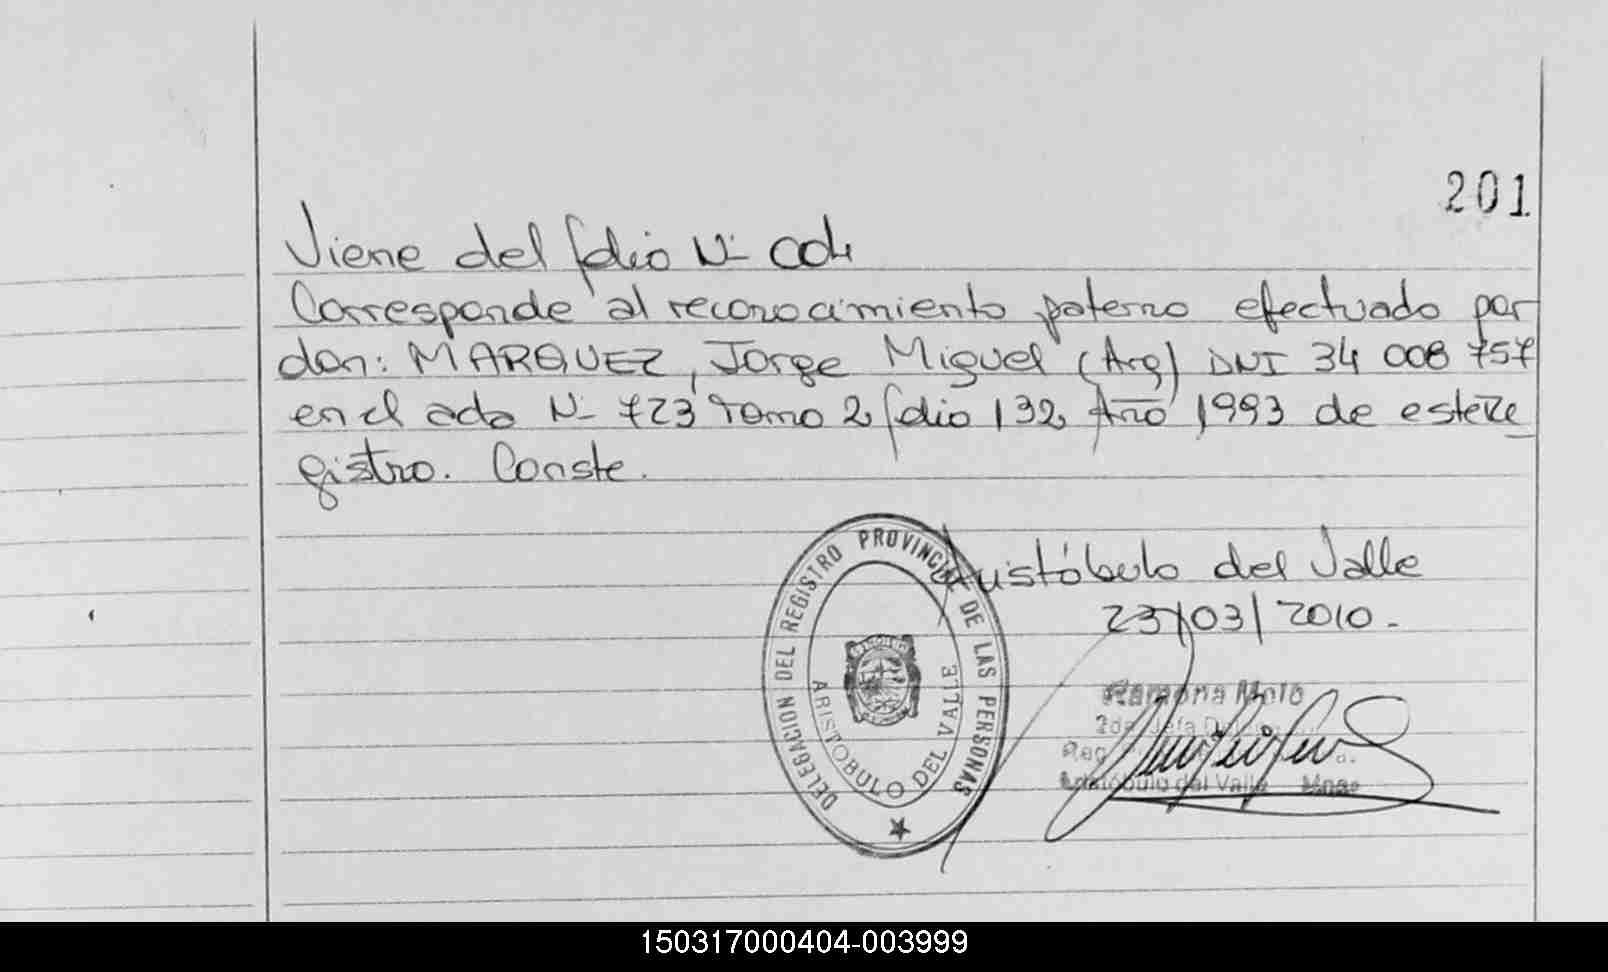 201
Viene del folio Nº 004
Corresponde al reconocimiento paterno efectuado por
don: MARQUEZ, Jorge Miguel (Arg) DNI 34 008 757
en el acta Nº 723 Tomo 2 folio 132 Año 1993 de este Re
gistro. Conste.
Aristóbulo del Valle
23/03/2010.-
DELEGACION DEL REGISTRO PROVINCIAL DE LAS PERSONAS
ARISTOBULO DEL VALLE
Ramona
2da. Jefa
Aristóbulo del Valle Mnes
150317000404-003999